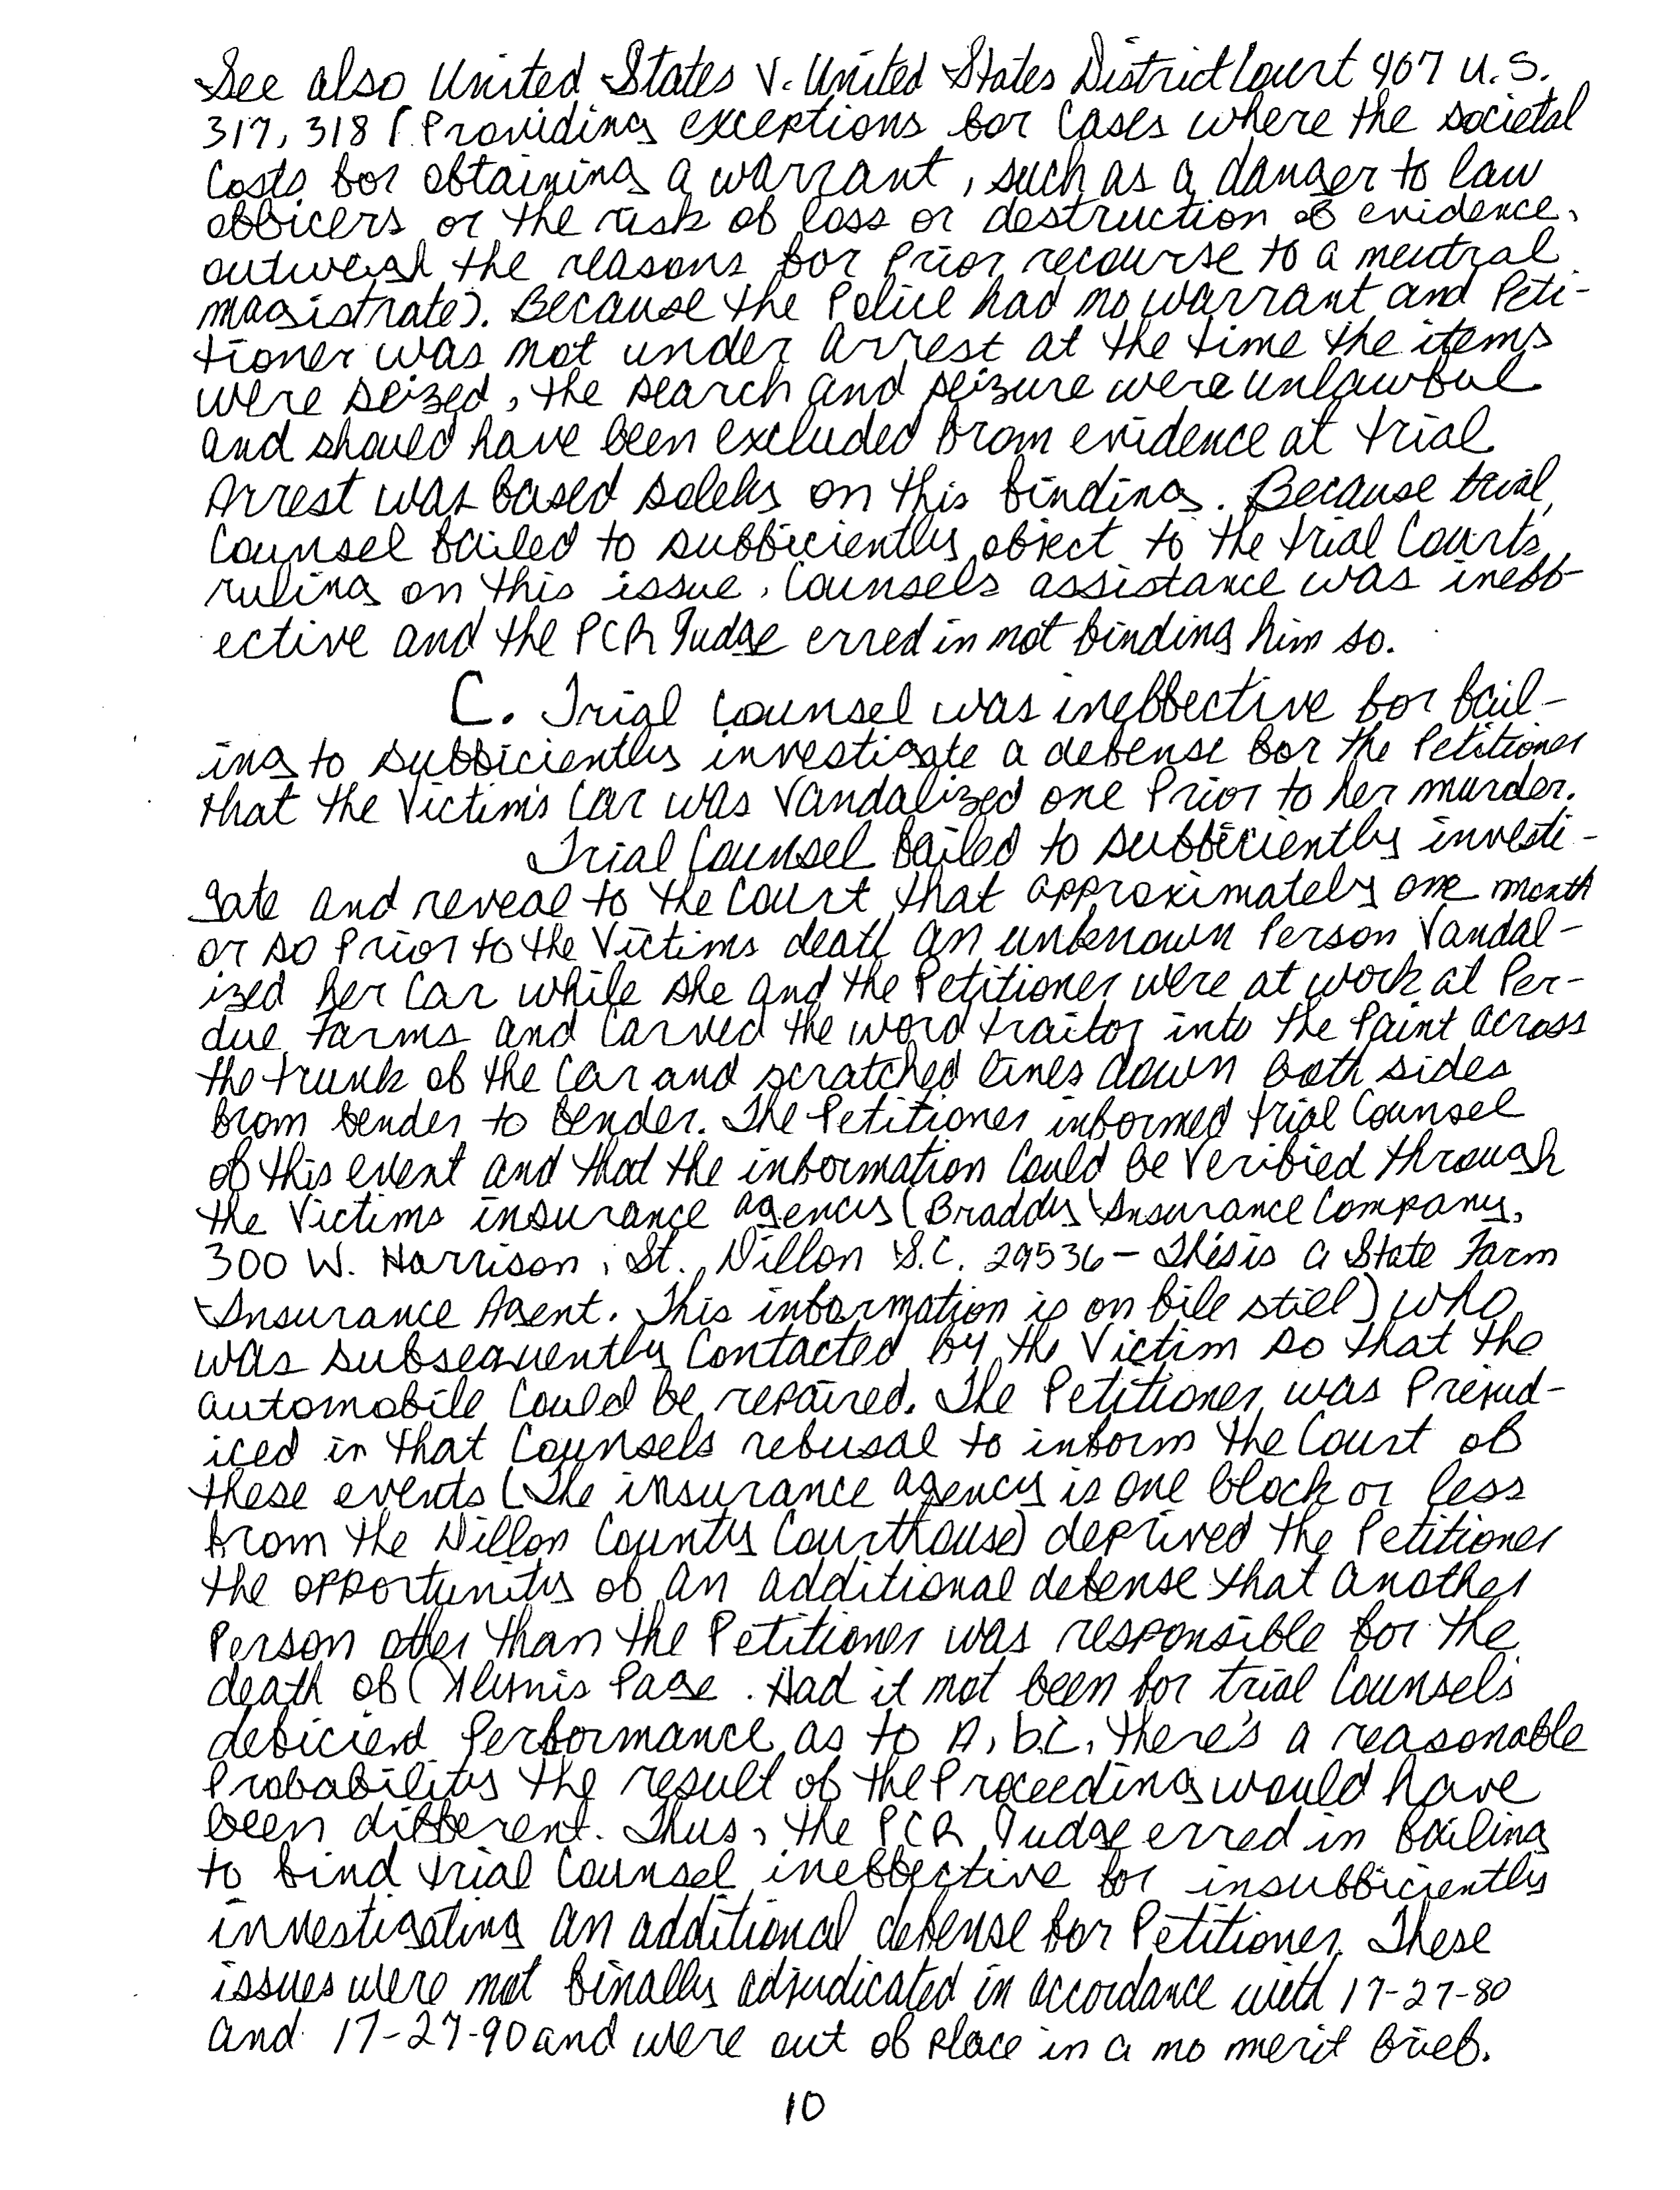 See also United States v. United States District Court 407 U.S.
317, 318 (Providing exceptions for cases where the societal
Costs for obtaining a warrant, such as a danger to law
officers or the risk of loss or destruction of evidence,
outweigh the reasons for Prior recourse to a neutral
magistrate). Because the Police had no warrant and Peti-
tioner was not under arrest at the time the items
were seized, the search and seizure were unlawful
and should have been excluded from evidence at trial
Arrest was based solely on this finding. Because trial,
Counsel failed to sufficiently object to the trial Courts
ruling on this issue, Counsels assistance was ineff-
ective and the PCR Judge erred in not finding him so.
C. Trial Counsel was ineffective for fail-
ing to sufficiently investigate a defense for the Petitioner
that the Victim's Car was Vandalized one Prior to her murder.
Trial Counsel failed to sufficiently investi-
gate and reveal to the Court that approximately one month
or so Prior to the Victims death an unknown Person Vandal-
ized her Car while she and the Petitioner were at work at Per-
due Farms and Carved the word traitor into the Paint across
the trunk of the Car and scratched lines down both sides
from fender to fender. The Petitioner informed trial Counsel
of this event and that the information Could be Verified through
the Victims insurance agency (Braddy Insurance Company,
300 W. Harrison, St. Dillon S.C. 29536 - This is a State Farm
Insurance Agent. This information is on file still) who,
was subsequently Contacted by the Victim so that the
automobile Could be repaired. The Petitioner was Prejud-
iced in that Counsels refusal to inform the Court of
these events (The insurance agency is one block or less
from the Dillon County Courthouse) deprived the Petitioner
the opportunity of an additional defense that another
Person other than the Petitioner was responsible for the
death of ( Page. Had it not been for trial Counsel's
deficient Performance as to A, b.C, there's a reasonable
Probability the result of the Proceeding would have
been different. Thus, the PCR Judge erred in failing
to find trial Counsel ineffective for insufficiently
investigating an additional defense for Petitioner. These
issues were not finally adjudicated in accordance with 17-27-80
and 17-27-90 and were out of place in a no merit brief.
10